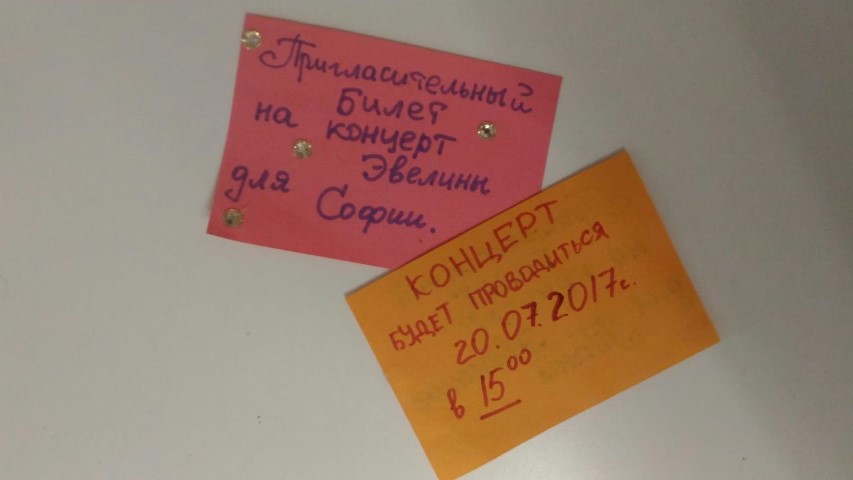 Пригласительный
Билет
на концерт
Эвелины
для Софии.
КОНЦЕРТ
БУДЕТ ПРОВОДИТЬСЯ
20.07.2017г.
в 15⁰⁰